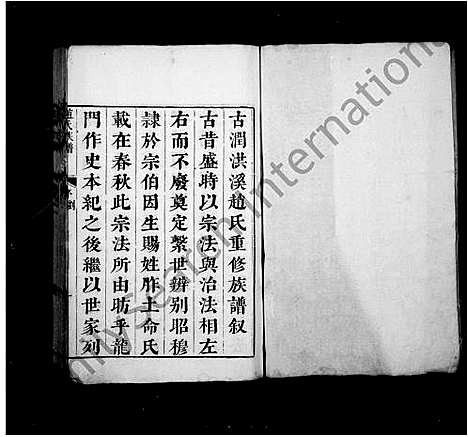 古潤洪溪趙氏重修族譜叙
古昔盛時以宗法與治法相左
右而不廢奠定繫世辨别昭穆
隷於宗伯因生賜姓胙土命氏
載在春秋此宗法所由昉乎龍
門作史本紀之後繼以世家列
趙氏族譜
Search International